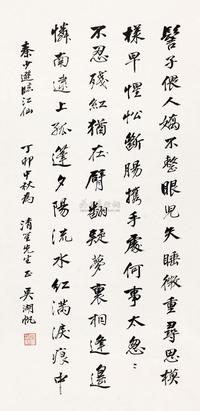 髻子偎人嬌不整眼兒失睡微重尋思模
樣早惺忪斷腸攜手處何事太怱〻
不忍殘紅猶在臂翻疑夢裏相逢遙
憐南埭上孤篷夕陽流水紅滿淚痕中
秦少遊臨江仙 丁卯中秋為 清先生正 吳湖帆